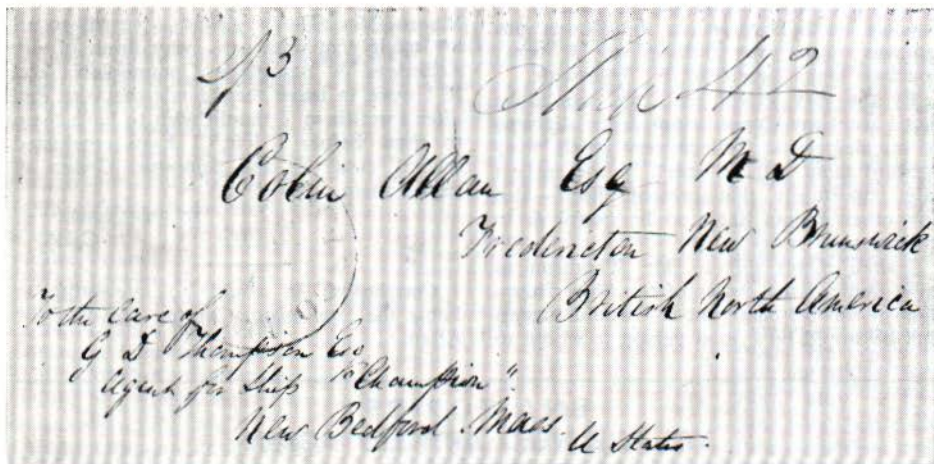 Ship 42
Colin Allan Esq M D
Fredericton New Brunswick
British North America
To the Care of
G D Thompson Esq
Agent for Ship "Champion"
New Bedford Mass.
U States.